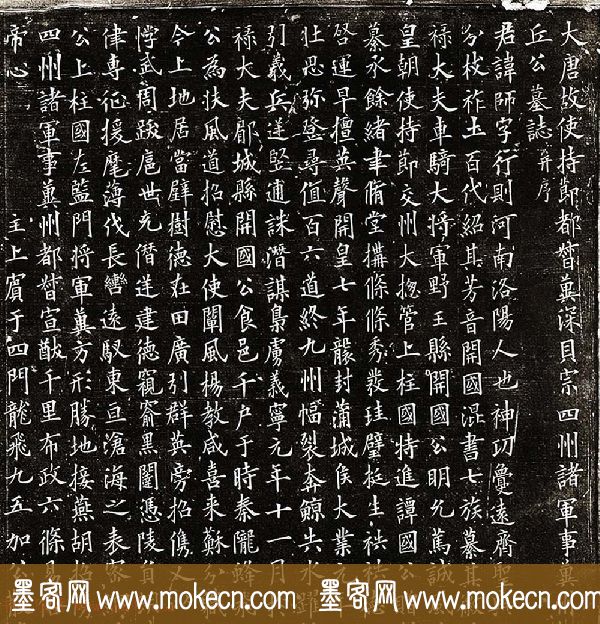 大唐故使持節都督冀深貝宗四州諸軍事冀
丘公墓誌并序
君諱師字行則河南洛陽人也神功疊遠齊聖
分枝祚土百代紹其芳音開國混書七族慕其
祿大夫車騎大將軍野王縣開國公明允篤誠
皇朝使持節交州大捴管上柱國特進譚國公
慕永餘緒聿脩堂搆條條秀發珪璧挺生
啓運早擅英聲開皇七年襲封蒲城侯大業
壯思弥隆尋值百六道終九州幅裂奔鯨共水
引義兵逆豎通謀潛謀梟虜義寧元年十一月
祿大夫郿城縣開國公食邑千户于時秦隴
公為扶風道招慰大使闡風楊教咸喜來蘇
今上地居當璧樹德在田廣引群英旁招儁乂
悖武周跋扈世充僭逆建德窺窬黑闥憑陵
律專征援麾薄伐長轡遠馭東亘滄海之表
公上柱國左監門將軍冀方形勝地接燕胡
四州諸軍事冀州都督宣猷千里布政六條
帝心 主上賓于四門龍飛九五加公
墨客网 www.mokecn.com 墨客网 www.mokecn.com